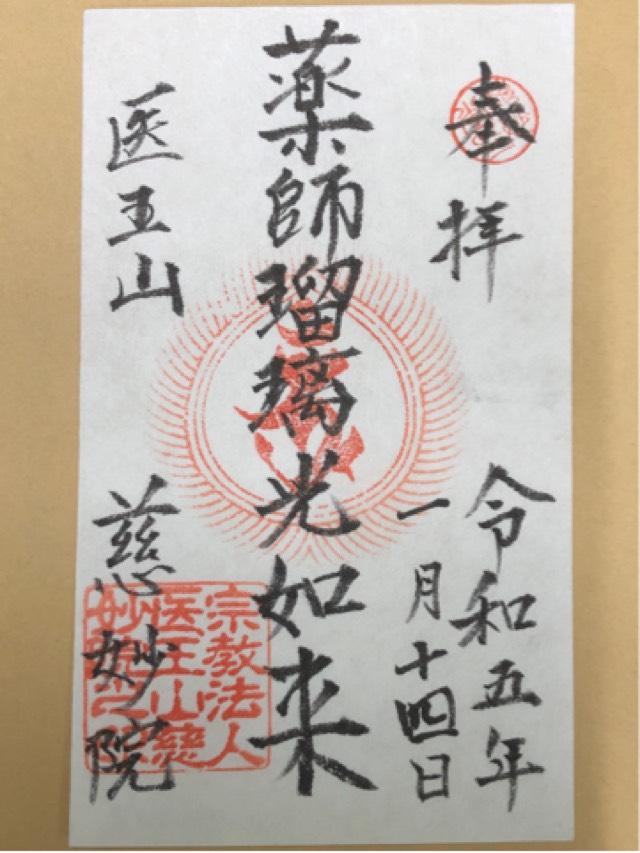 奉拝
令和五年
一月十四日
薬師瑠璃光如来
医王山
慈妙院
宗教法人
医王山慈
妙院之印